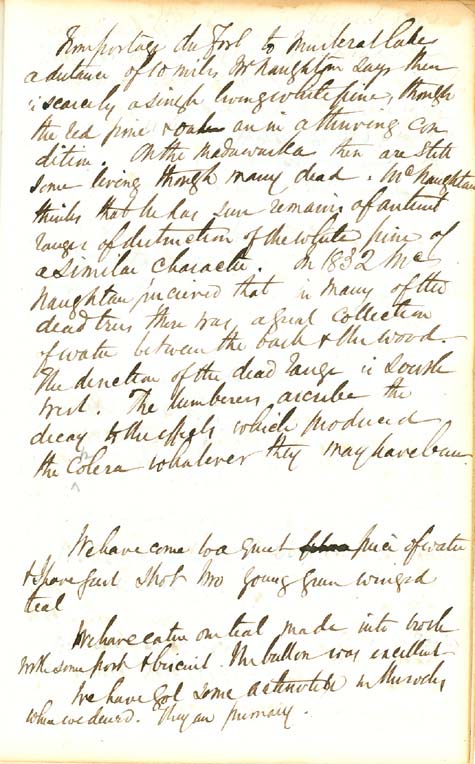 From portage du Fort to Muskrat lake
a distance of 10 miles Mc Naughton says there
is scarcely a single living white pine, though
the red pine & oak are in a thriving con
dition. On the Madawaska there are still
some living though many dead. McNaughton
thinks that he has seen remains of antient
ranges of destruction of the white pine of
a similar character. In 1832 Mc
Naughton perceived that in many of the
dead trees there was a great collection
of water between the bark & the wood.
The direction of the dead range is South
West. The lumberers ascribe the
decay to the effects which produced
the Colera whatever they may have been

We have come to a quiet piece of water
& I have just shot two young green winged
teal
We have eaten one teal made into broth
with some pork & biscuit. The bullion was excellent
We have got some in the rocks
where we dined. They are primary.